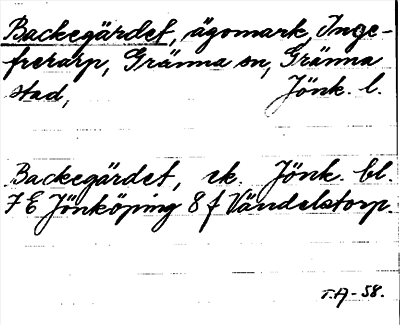 Backegärdet, ägomark, Inge-
frearp, Gränna sn, Gränna
stad, Jönk. l.
Backegärdet, ek. Jönk. bl.
7 E Jönköping 8 f Vändelstorp.
T.A-58.